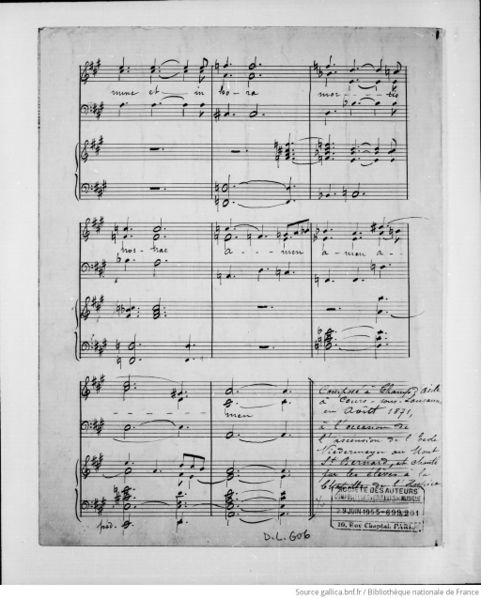 nunc et in hora mor - - - tis
nostrae a - - men a - men a -
men
Composé à
à Cours - sous - Lausanne
en Août 1871,
à l'occasion de
l'ascension de l'Ecole
Niedermeyer au Mont
St Bernard, et chanté
par les élèves à la
Chapelle de l'Hospice
ped.
SOCIÉTÉ DES AUTEURS
29 JUIN 1955 - 699,201
10, Rue Chaptal, PARIS
D.L. 606
Source gallica.bnf.fr / Bibliothèque nationale de France